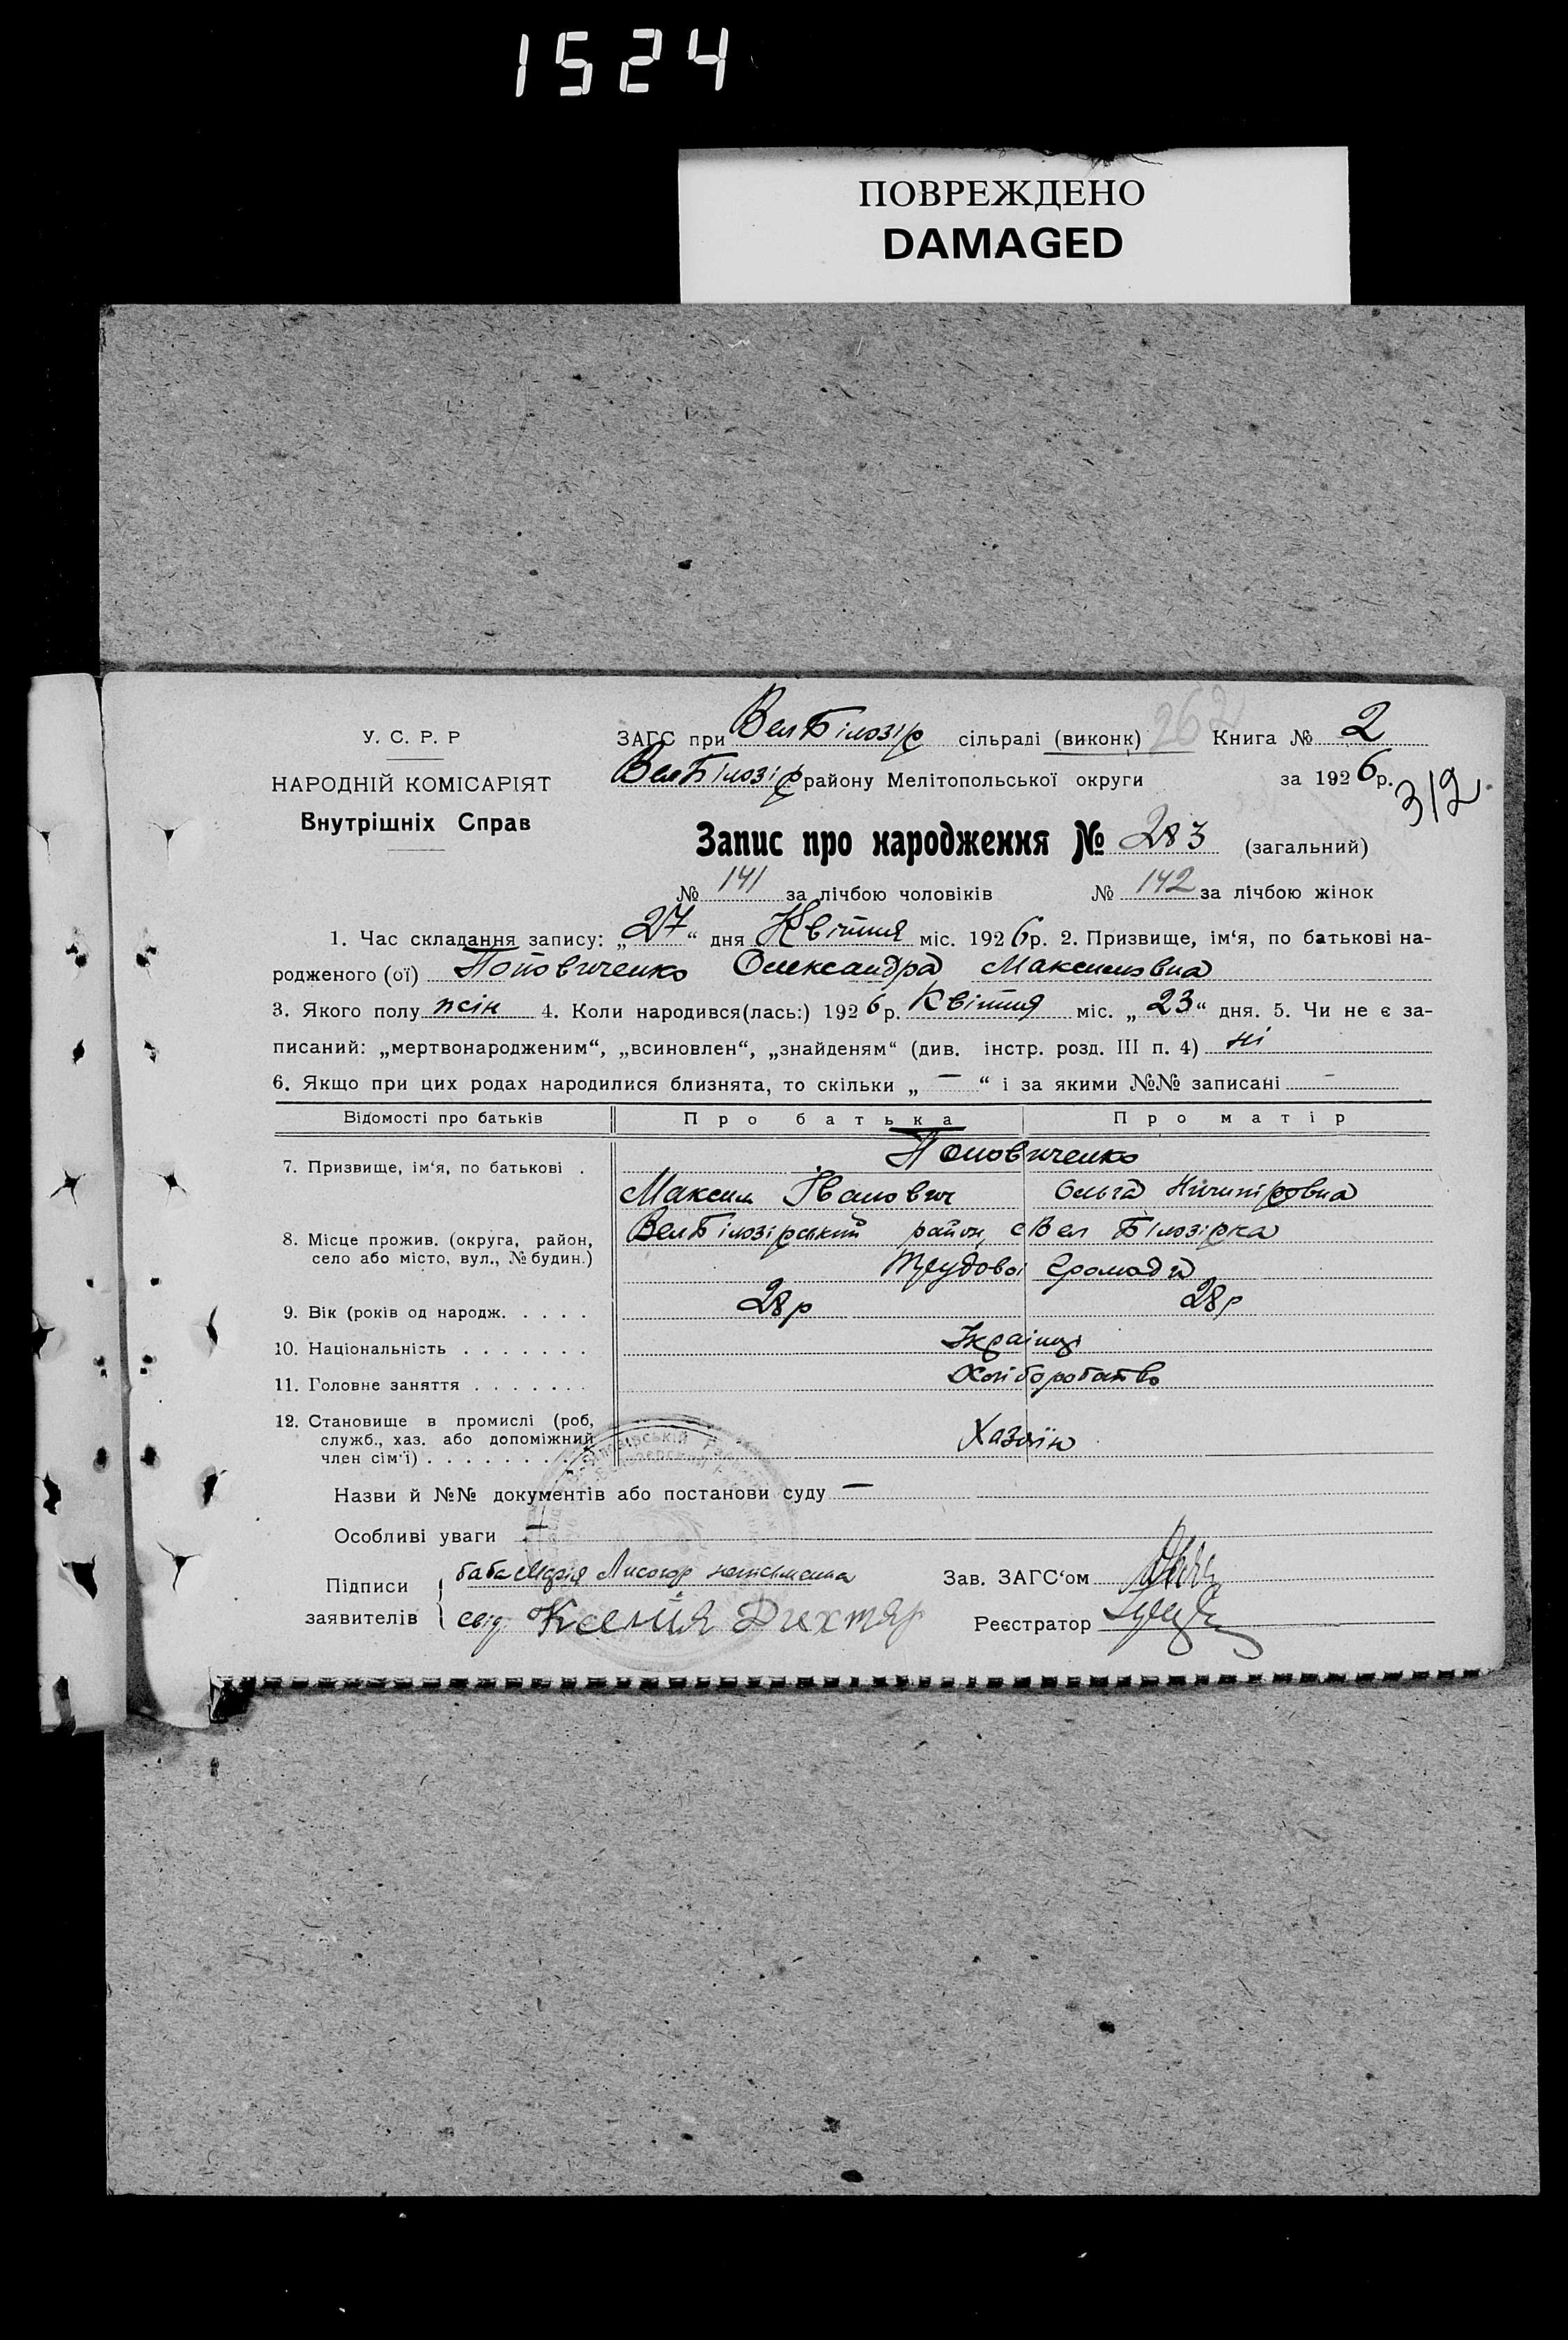 1524
ПОВРЕЖДЕНО
DAMAGED
У. С. Р. Р
НАРОДНІЙ КОМІСАРІЯТ
Внутрішніх Справ
ЗАГС при ВелБілозір сільраді (виконк) 262 Книга № 2
ВелБілозір району Мелітопольської округи за 1926р.
312
Запис про народження № 283 (загальний)
№ 141 за лічбою чоловіків № 142 за лічбою жінок
1. Час складання запису: „27“ дня Квітня міс. 1926р. 2. Призвище, ім‘я, по батькові на-
родженого (ої) Поповиченко Олександра Максимовна
3. Якого полу жін 4. Коли народився(лась:) 1926р. Квітня міс. „23“ дня. 5. Чи не є за-
писаний: „мертвонародженим“, „всиновлен“, „знайденям“ (див. інстр. розд. III п. 4) ні
6. Якщо при цих родах народилися близнята, то скільки „ — “ і за якими №№ записані -
Відомості про батьків Про батька Про матір
7. Призвище, ім‘я, по батькові . Поповиченко
Максим Іванович Ольга Ничипіровна
8. Місце прожив. (округа, район, село або місто, вул., № будин.) ВелБілозірський район, с Вел Білозірка
Трудової Громади
9. Вік (років од народж. . . . . 28р 28р
10. Національність . . . . . . . Українці
11. Головне заняття . . . . . . . Хліборобство
12. Становище в промислі (роб,
служб., хаз. або допоміжний
член сім‘ї) . . . . . . . . Хазяїн
Назви й №№ документів або постанови суду —
Особливі уваги —
Підписи баба Марія Лисогор неписьмена Зав. ЗАГС‘ом
заявителів свід. Ксенія Дихтяр Реєстратор